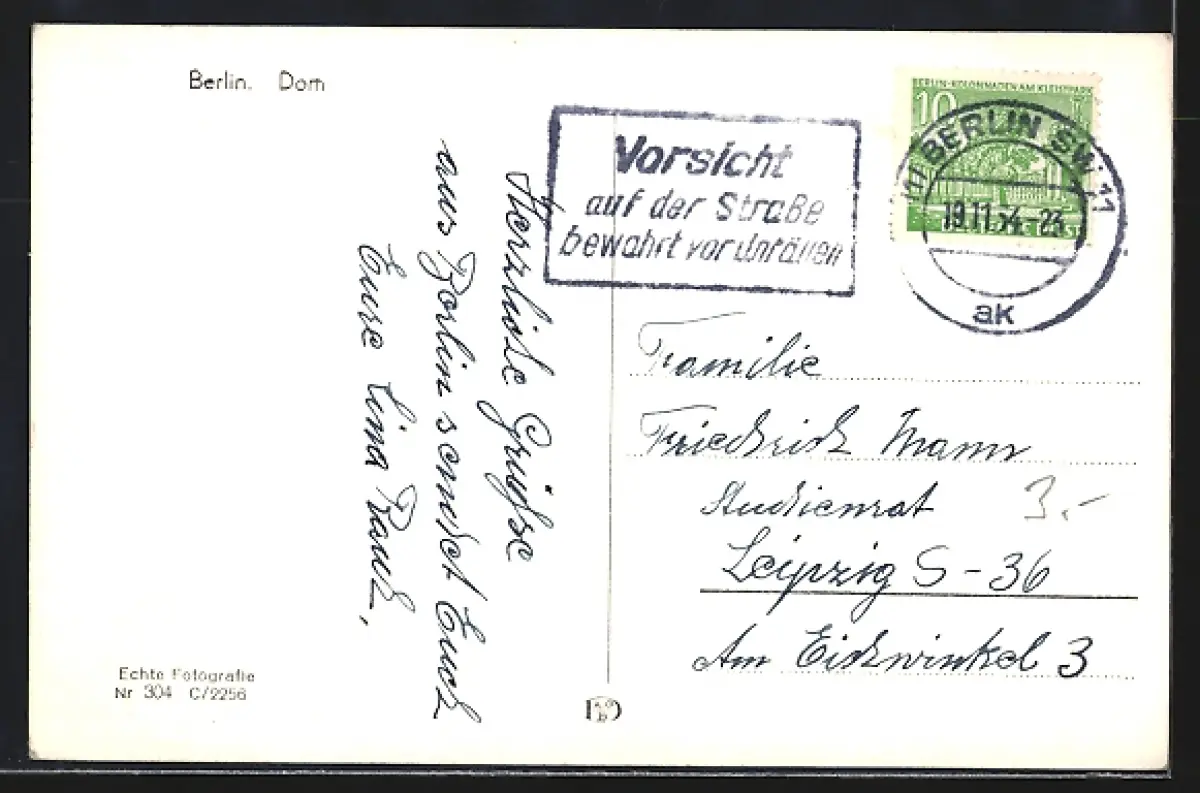 Berlin. Dom
BERLIN-KOLONNADEN AM KLEISTPARK
10
(1) BERLIN SW 11
19.11.54.-23
ak
Vorsicht
auf der Straße
bewahrt vor Unfällen
Herzliche Grüße
aus Berlin sendet Euch
Eure Lina
Familie
Friedrich Mann
Studienrat
3.-
Leipzig S-36
Am Eichwinkel 3
Echte Fotografie
Nr 304 C/2256